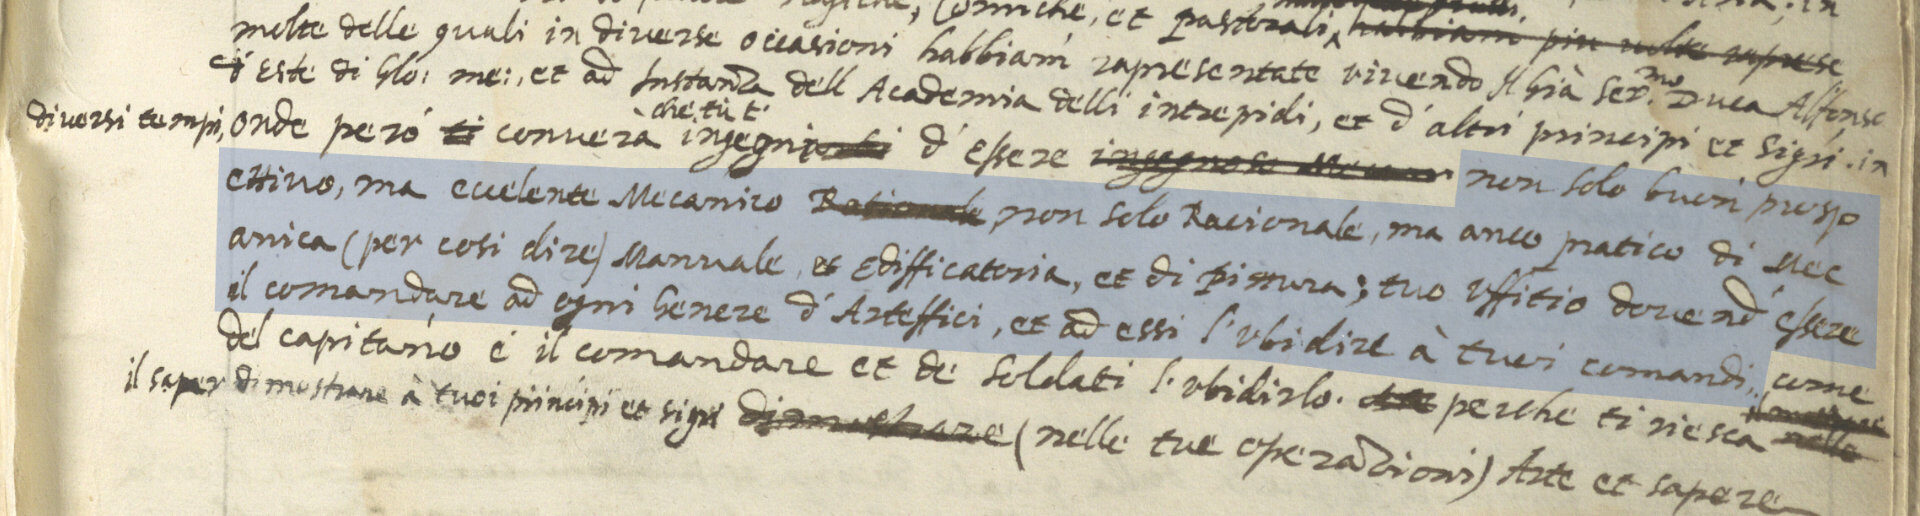 Comiche, et pastorali,
molte delle quali in diverse occasioni habbiam rapresentate vivendo il già Ser.mo Duca Alfonso
d'Este di Glo: me:, et ad Instanza dell Academia delli intrepidi, et d'altri principi et Sigri. in
diversi tempi, onde peró converà che tù t' ingegni d'essere non solo buon prosp
ettivo, ma ecelente Mecanico non solo Racionale, ma anco pratico di Mec
anica (per cosi dire) Manuale, et Edifficatoria, et di Pittura; tuo Uffitio dovend' essere
il comandare ad ogni Genere d'Arteffici, et ad essi l'ubidire à tuoi comandi, come
del capitano é il comandare et de Soldati l'ubidirlo. perche ti riesca
il saper dimostrare à tuoi principi et sigri (nelle tue operazioni) Arte et sapere